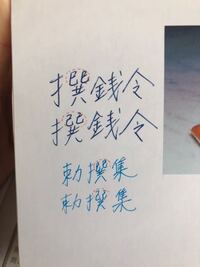 撰銭令
撰銭令
勅撰集
勅撰集